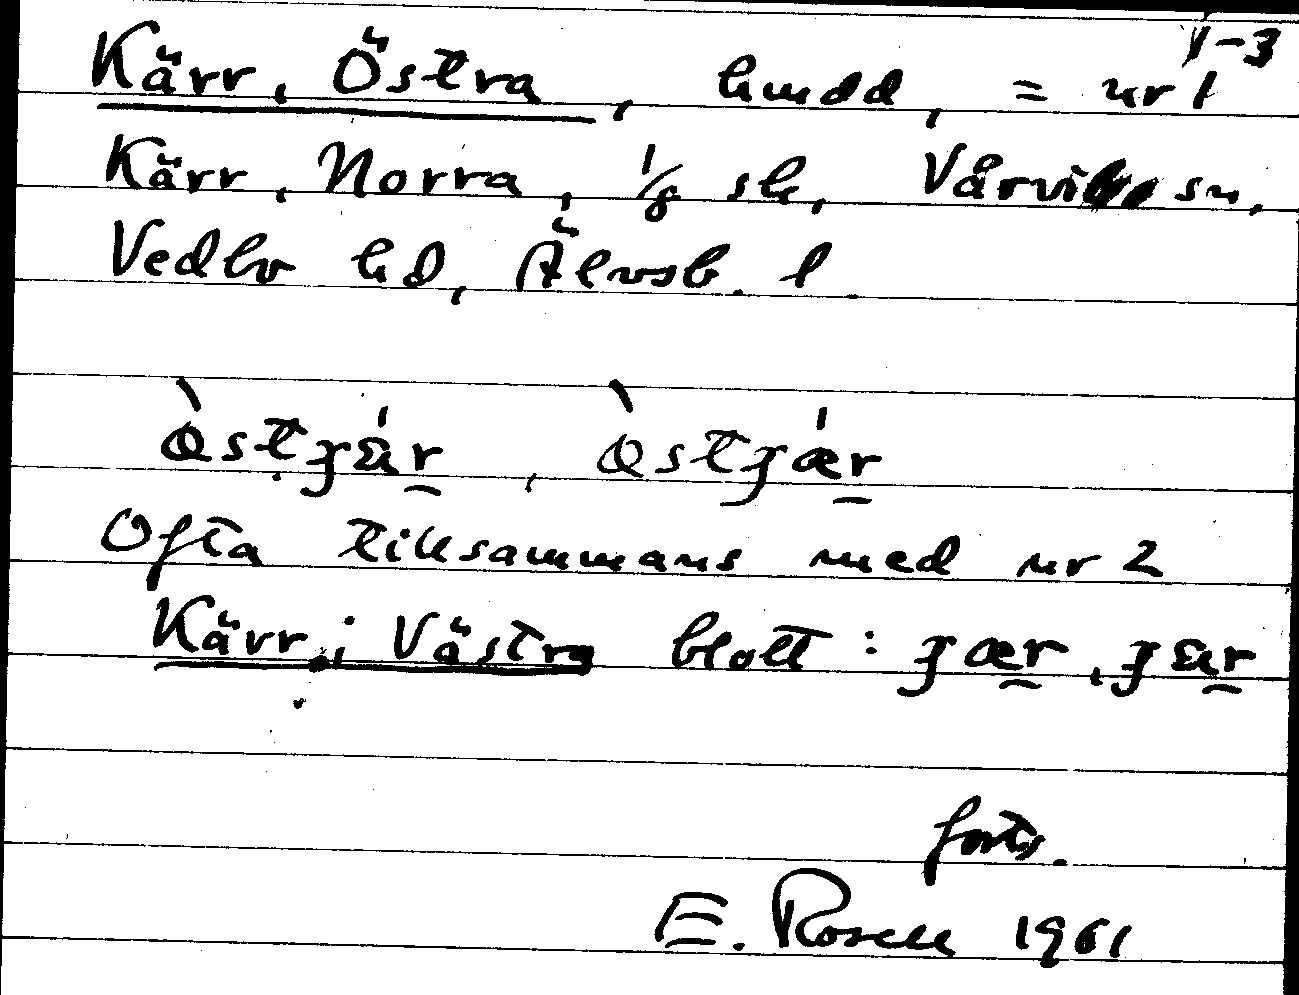 1-3
Kärr, Östra, hmdd, = nr 1
Kärr, Norra, 1/8 sk, Vårviks sn,
Vedbo hd, Älvsb. l
Ofta tillsammans med nr 2
Kärr, Västra blott:
forts.
E. Rosell 1961